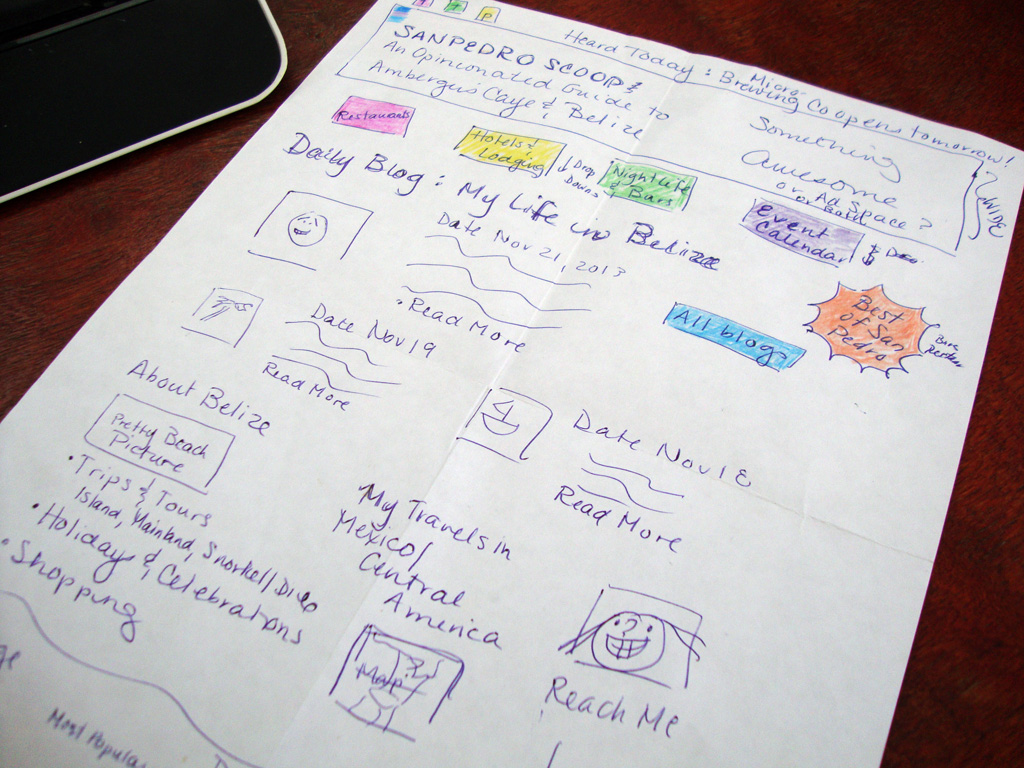 Heard Today: Micro Brewing Co opens tomorrow!
SANPEDRO SCOOP
An Opinionated Guide to
Ambergris Caye & Belize
Something
Awesome
or Ad Space?
Restaurants
Hotels &
Lodging
Drop
Downs
Nightlife
& Bars
Event
Calendar
Daily Blog: My Life in Belize
Date Nov 21, 2013
Read More
All blogs
Best
of San
Pedro
Date Nov 19
Read More
Date Nov 18
Read More
About Belize
Pretty Beach
Picture
• Trips & Tours
Island, Mainland, Snorkel/Dive
• Holiday & Celebrations
• Shopping
My Travels in
Mexico/
Central
America
Map
Reach Me
Most Popular